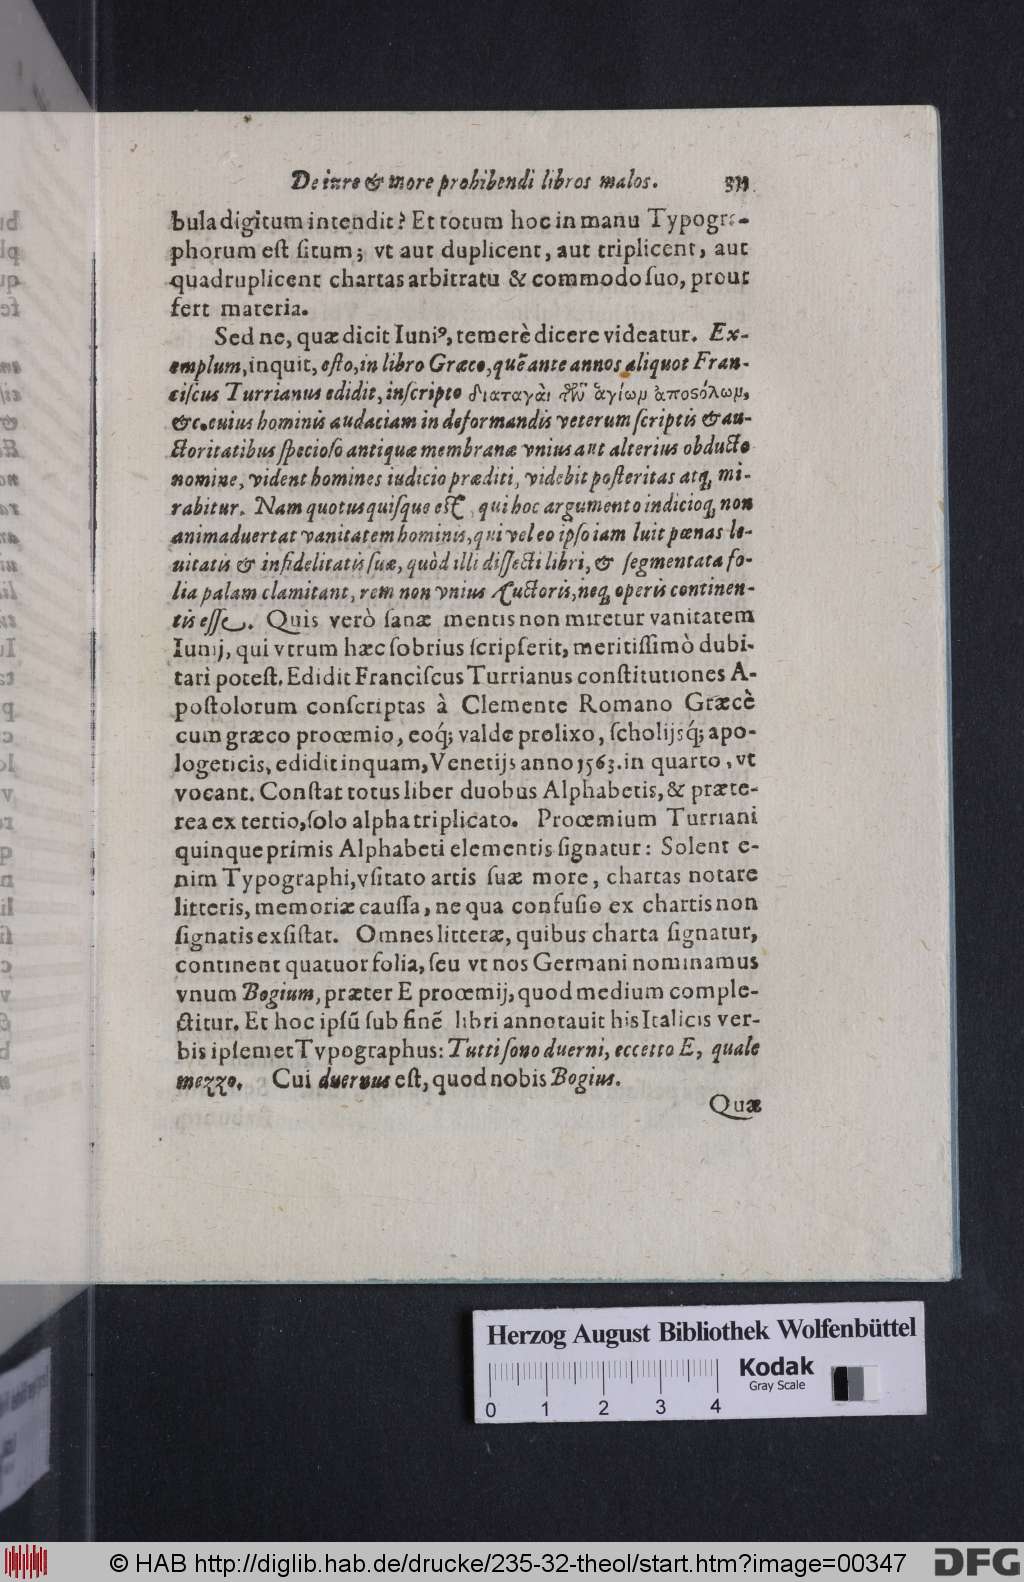 De iure & more prohibendi libros malos. 311
bula digitum intendit? Et totum hoc in manu Typogra-
phorum est situm; vt aut duplicent, aut triplicent, aut
quadruplicent chartas arbitratu & commodo suo, prout
fert materia.
Sed ne, quæ dicit Iuniꝰ, temerè dicere videatur. Ex-
emplum, inquit, esto, in libro Græco, quē ante annos aliquot Fran-
ciscus Turrianus edidit, inscripto διαταγαὶ τῶν ἁγίων ἀποϛόλων,
&c. cuius hominis audaciam in deformandis veterum scriptis & au-
ctoritatibus specioso antiquæ membranæ vnius aut alterius obducto
nomine, vident homines iudicio præditi, videbit posteritas atq; mi-
rabitur. Nam quotusquisque est, qui hoc argumento indicioq; non
animaduertat vanitatem hominis, qui vel eo ipso iam luit pœnas le-
uitatis & infidelitatis suæ, quòd illi dissecti libri, & segmentata fo-
lia palam clamitant, rem non vnius Auctoris, neq; operis continen-
tis esse. Quis verò sanæ mentis non miretur vanitatem
Iunij, qui vtrum hæc sobrius scripserit, meritissimò dubi-
tari potest. Edidit Franciscus Turrianus constitutiones A-
postolorum conscriptas à Clemente Romano Græcè
cum græco proœmio, eoq́; valde prolixo, scholijsq́; apo-
logeticis, edidit inquam, Venetijs anno 1563. in quarto, vt
vocant. Constat totus liber duobus Alphabetis, & præte-
rea ex tertio, solo alpha triplicato. Proœmium Turriani
quinque primis Alphabeti elementis signatur: Solent e-
nim Typographi, vsitato artis suæ more, chartas notare
litteris, memoriæ caussa, ne qua confusio ex chartis non
signatis exsistat. Omnes litteræ, quibus charta signatur,
continent quatuor folia, seu vt nos Germani nominamus
vnum Bogium, præter E proœmij, quod medium comple-
ctitur. Et hoc ipsū sub finē libri annotauit his Italicis ver-
bis ipsemet Typographus: Tutti sono duerni, eccetto E, quale
mezzo. Cui duernus est, quod nobis Bogius.
Quæ
Herzog August Bibliothek Wolfenbüttel
Kodak
Gray Scale
0 1 2 3 4
© HAB http://diglib.hab.de/drucke/235-32-theol/start.htm?image=00347
DFG